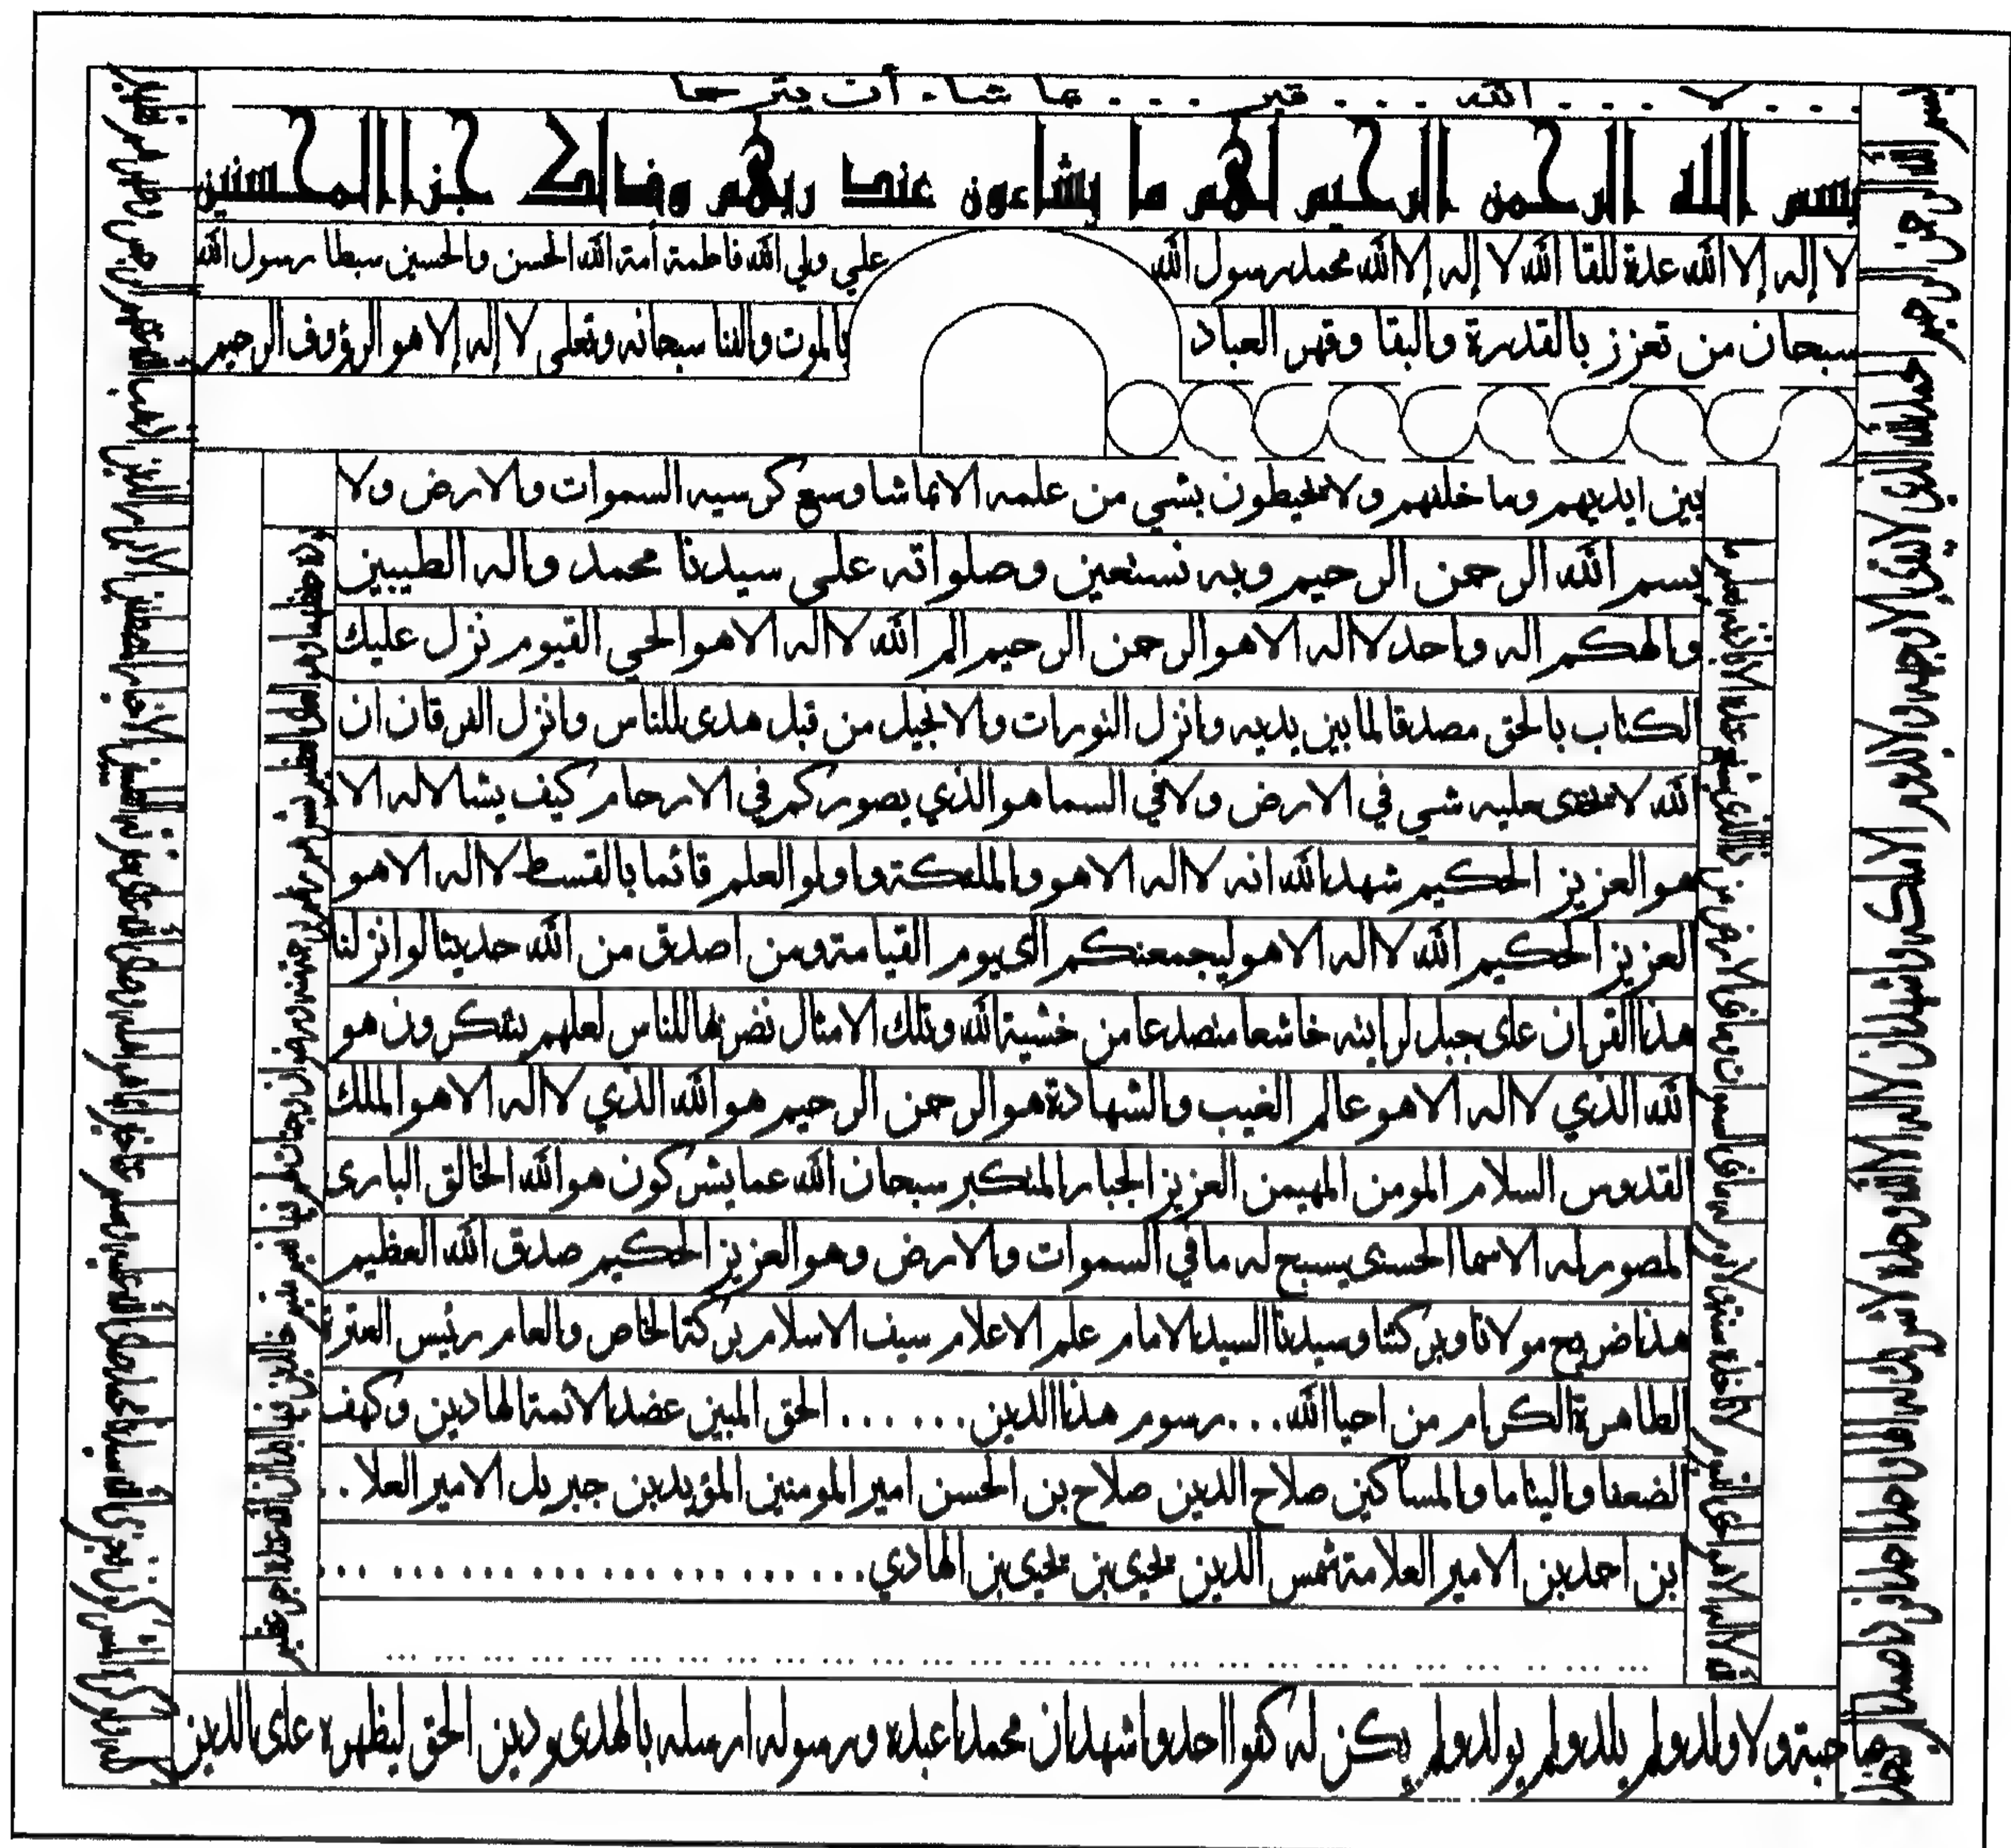 لا ... الله ... قبر ... ما شاء أن يترحما
بسم الله الرحمن الرحيم لهم ما يشاءون عند ربهم وذالك جزا المحسنين
لا إله إلا الله عدة للقا الله لا إله إلا الله محمد رسول الله علي ولي الله فاطمة أمة الله الحسن والحسين سبطا رسول الله
سبحان من تعزز بالقدرة والبقا وقهر العباد بالموت والفنا سبحانه وتعلى لا إله إلا هو الرؤوف الرحيم
بين ايديهم وما خلفهم ولا يحيطون بشي من علمه الا بما شا وسع كرسيه السموات والارض ولا
بسم الله الرحمن الرحيم وبه نستعين وصلواته على سيدنا محمد واله الطيبين
والهكم اله واحد لا اله الا هو الرحمن الرحيم الم الله لا اله الا هو الحي القيوم نزل عليك
الكتاب بالحق مصدقا لما بين يديه وانزل التورات والانجيل من قبل هدى للناس وانزل الفرقان ان
الله لا يخفى عليه شي في الارض ولا في السما هو الذي يصوركم في الارحام كيف يشا لا اله الا
هو العزيز الحكيم شهد الله انه لا اله الا هو والملئكة واولو العلم قائما بالقسط لا اله الا هو
العزيز الحكيم الله لا اله الا هو ليجمعنكم الى يوم القيامة ومن اصدق من الله حديثا لو انزلنا
هذا القران على جبل لرايته خاشعا متصدعا من خشية الله وتلك الامثال نضربها للناس لعلهم يتفكرون هو
الله الذي لا اله الا هو عالم الغيب والشهادة هو الرحمن الرحيم هو الله الذي لا اله الا هو الملك
القدوس السلام المومن المهيمن العزيز الجبار المتكبر سبحان الله عما يشركون هو الله الخالق البارى
المصور له الاسما الحسنى يسبح له ما في السموات والارض وهو العزيز الحكيم صدق الله العظيم
هذا ضريح مولانا وبركتنا وسيدنا السيد الامام علم الاعلام سيف الاسلام بركة الخاص والعام رئيس العترة
الطاهرة الكرام من احيا الله ... رسوم هذا الدين ...... الحق المبين عضد الائمة الهادين وكهف
الضعفا واليتاما والمساكين صلاح الدين صلاح بن الحسن امير المومنين المؤيد بن جبريل الامير العلا ..
بن احمد بن الامير العلامة شمس الدين يحيى بن يحيى بن الهادي
بسم الله الرحمن الرحيم الحمد لله الذي لا يبقى الا وجهه ولا يدوم الا ملكه واشهد ان لا اله الا الله وحده لا شريك له الها واحدا احدا فردا صمدا لم يتخذ
صاحبة ولا ولد ولم يلد ولم يولد ولم يكن له كفوا احد واشهد ان محمدا عبده ورسوله ارسله بالهدى ودين الحق ليظهره على الدين
الله لا اله الا هو الحي القيوم لا تاخذه سنة ولا نوم له ما في السموات وما في الارض من ذا الذي يشفع عنده الا باذنه يعلم ما
يوده حفظهما وهو العلي العظيم يبشرهم ربهم برحمة منه ورضوان وجنات لهم فيها نعيم مقيم خالدين فيها ابدا ان الله عنده اجر عظيم